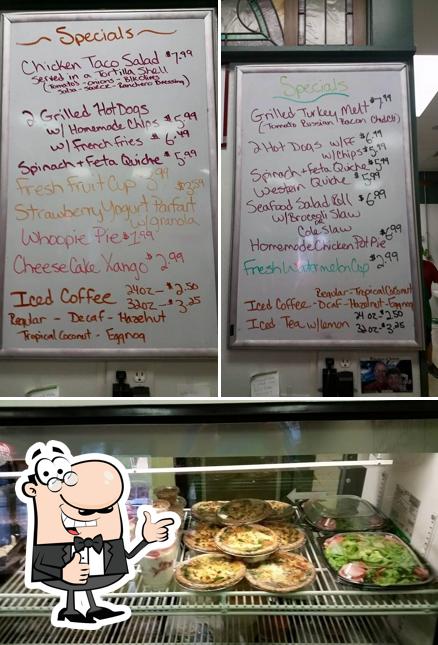 Specials
Chicken Taco Salad $7.99
Served in a Tortilla Shell
(Tomato's - Onions - Blk Olives
Salsa - Sauce - Ranchero Dressing)
2 Grilled Hot Dogs
w/ Homemade Chips $5.49
w/ French Fries $6.49
Spinach + Feta Quiche $5.99
Fresh Fruit Cup 3.99
Strawberry Yogurt Parfait
w/ granola
Whoopie Pie $1.99
Cheese Cake Xango $2.99
Iced Coffee 24oz - $2.50
32oz - $3.25
Regular - Decaf - Hazelnut
Tropical Coconut - Eggnog
Specials
Grilled Turkey Melt $7.99
(Tomato Russian Bacon
2 Hot Dogs w/FF $6.49
w/Chips $5.49
Spinach + Feta Quiche $5.99
Western Quiche $5.99
Seafood Salad Roll $6.99
w/Broccoli Slaw
Cole Slaw
Homemade Chicken Pot Pie $6.99
Fresh Watermelon Cup $2.99
Regular - Tropical Coconut
Iced Coffee - Dcaf - Hazelnut - Eggnog
Iced Tea w/lemon 24 oz $2.50
32oz - $3.25